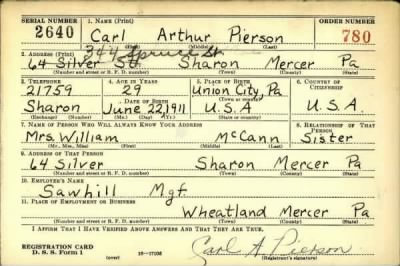 SERIAL NUMBER 1. NAME (Print) ORDER NUMBER
2640 Carl Arthur Pierson 780
(First) (Middle) (Last)
344 Spruce St
2. ADDRESS (Print)
64 Silver St. Sharon Mercer Pa
(Number and street or R. F. D. number) (Town) (County) (State)
3. TELEPHONE 4. AGE IN YEARS 5. PLACE OF BIRTH 6. COUNTRY OF CITIZENSHIP
21759 29 Union City, Pa
(Town or county)
DATE OF BIRTH
Sharon June 22, 1911 U.S.A U.S.A.
(Exchange) (Number) (Mo.) (Day) (Yr.) (State or country)
7. NAME OF PERSON WHO WILL ALWAYS KNOW YOUR ADDRESS 8. RELATIONSHIP OF THAT PERSON
Mrs. William McCann Sister
(Mr., Mrs., Miss) (First) (Middle) (Last)
9. ADDRESS OF THAT PERSON
64 Silver Sharon Mercer Pa
(Number and street or R. F. D. number) (Town) (County) (State)
10. EMPLOYER'S NAME
Sawhill Mgf.
11. PLACE OF EMPLOYMENT OR BUSINESS
Wheatland Mercer Pa
(Number and street or R. F. D. number) (Town) (County) (State)
I AFFIRM THAT I HAVE VERIFIED ABOVE ANSWERS AND THAT THEY ARE TRUE.
REGISTRATION CARD
D. S. S. Form 1 (over) Carl A Pierson
(Registrant's signature)